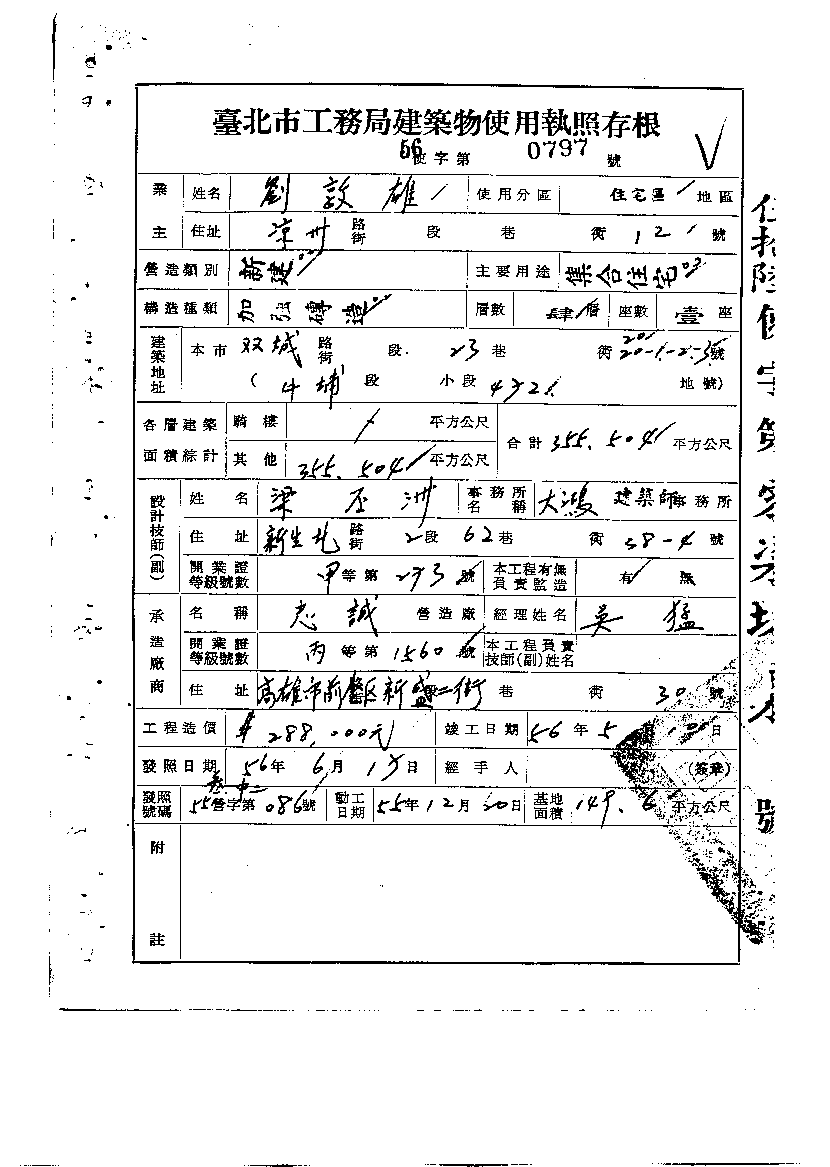 臺北市工務局建築物使用執照存根
56使字第 0797 號
業主 姓名 劉敦雄 使用分區 住宅區 地區
住址 涼州 路街 段 巷 衖 121 號
營造類別 新建 主要用途 集合住宅
構造種類 加強磚造 層數 肆層 座數 壹座
建築地址 本市 双城 路街 段 23巷 衖 20-1.2.3號
( 牛埔 段 小段 地號)
各層建築面積綜計 騎樓 / 平方公尺 合計 355.504 平方公尺
其他 355.504 平方公尺
設計技師(副) 姓名 梁 洲 事務所名稱 大鴻 建築師事務所
住址 新生北 路街 2段 62巷 衖 38-4 號
開業證等級號數 甲等第 號 本工程有無負責監造 有 無
承造廠商 名稱 忠誠 營造廠 經理姓名 吳猛
開業證等級號數 丙等第 1560 號 本工程負責技師(副)姓名
住址 高雄市前 區新盛二街 巷 衖 30 號
工程造價 288,000元 竣工日期 56年 5 日
發照日期 56年 6月 日 經手人 (簽章)
發照號碼 55營字第 086 號 動工日期 55年12月20日 基地面積 149.6 平方公尺
附註
伍拾陸使字第零柒 號